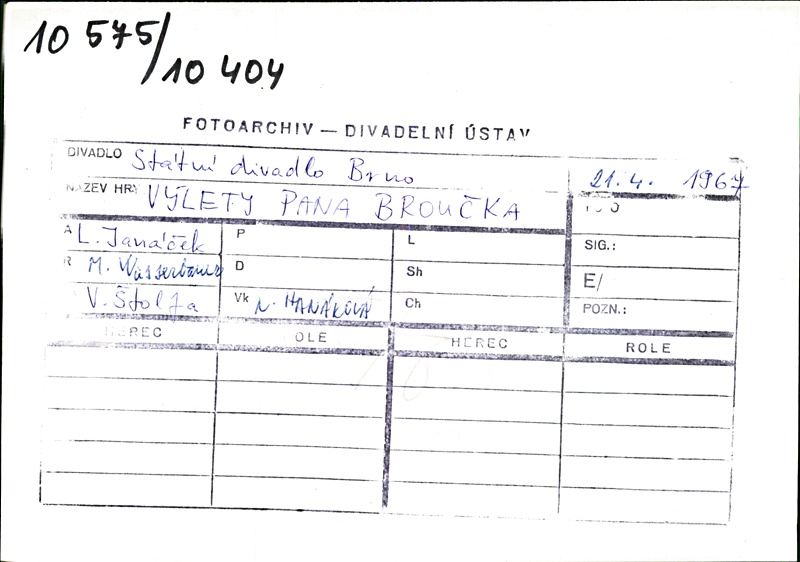 10 575/
10 404
FOTOARCHIV — DIVADELNÍ ÚSTAV
DIVADLO Státní divadlo Brno 21.4. 1967
NÁZEV HRY VÝLETY PANA BROUČKA
A L. Janáček P L SIG.:
R M. Wasserbauer D Sh E/
V. Štolfa Vk N. HANÁKOVÁ Ch POZN.:
HEREC OLE HEREC ROLE